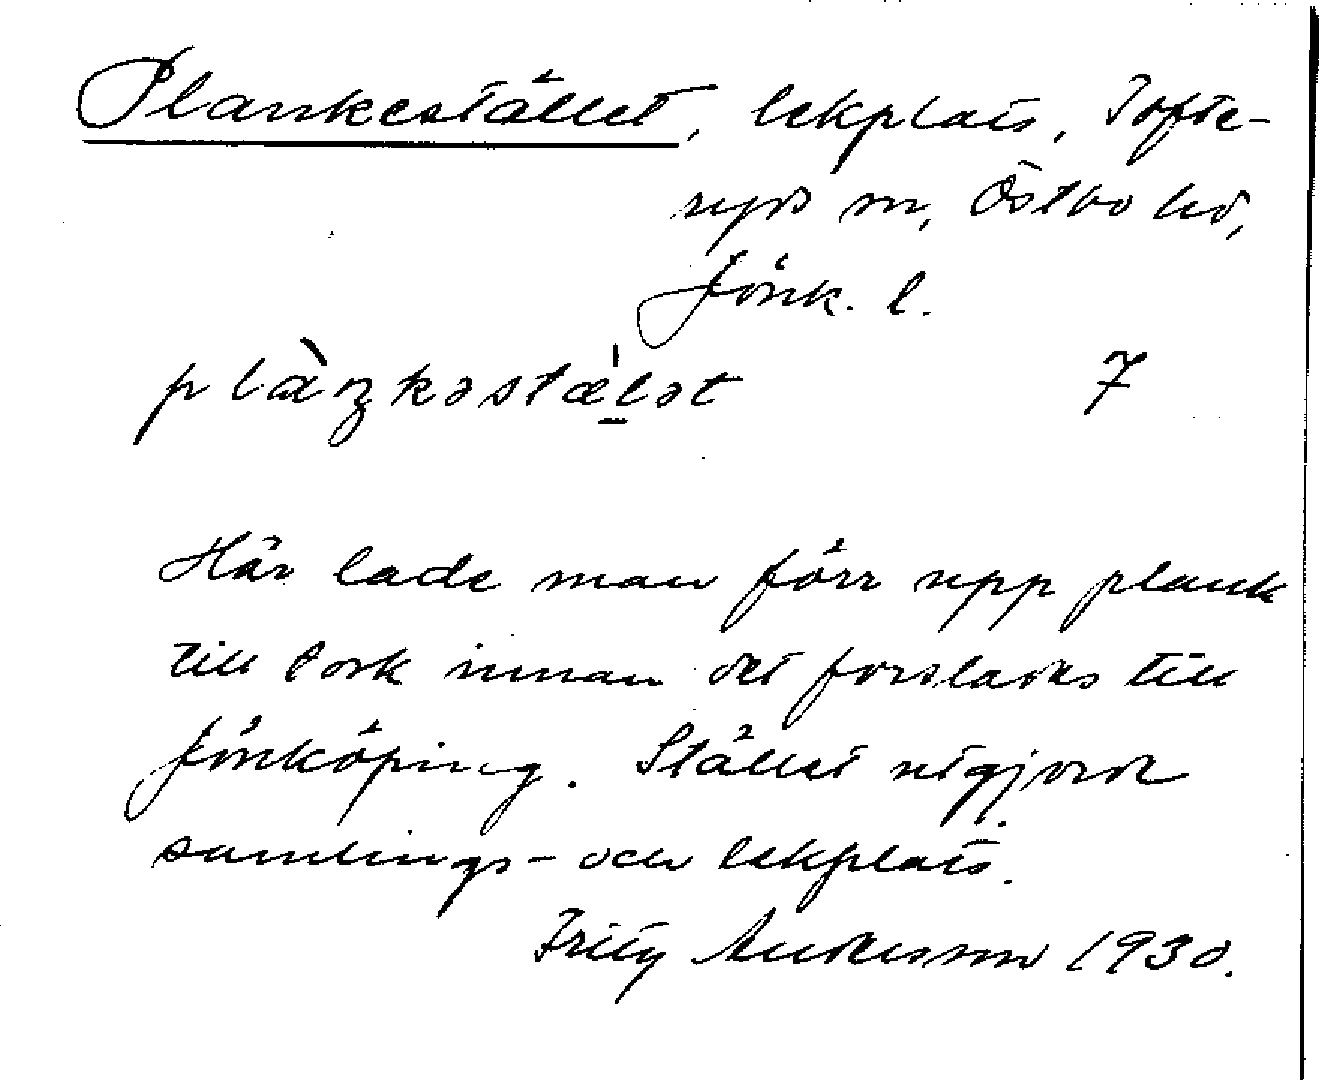 Plankestället, lekplats, Tofte-
ryds sn, Östbo hd,
Jönk. l.
plàŋkəstæ̍lət 7
Här lade man förr upp plank
till tork innan det forslades till
Jönköping. Stället utgjorde
samlings- och lekplats.
Fritz Andersson 1930.